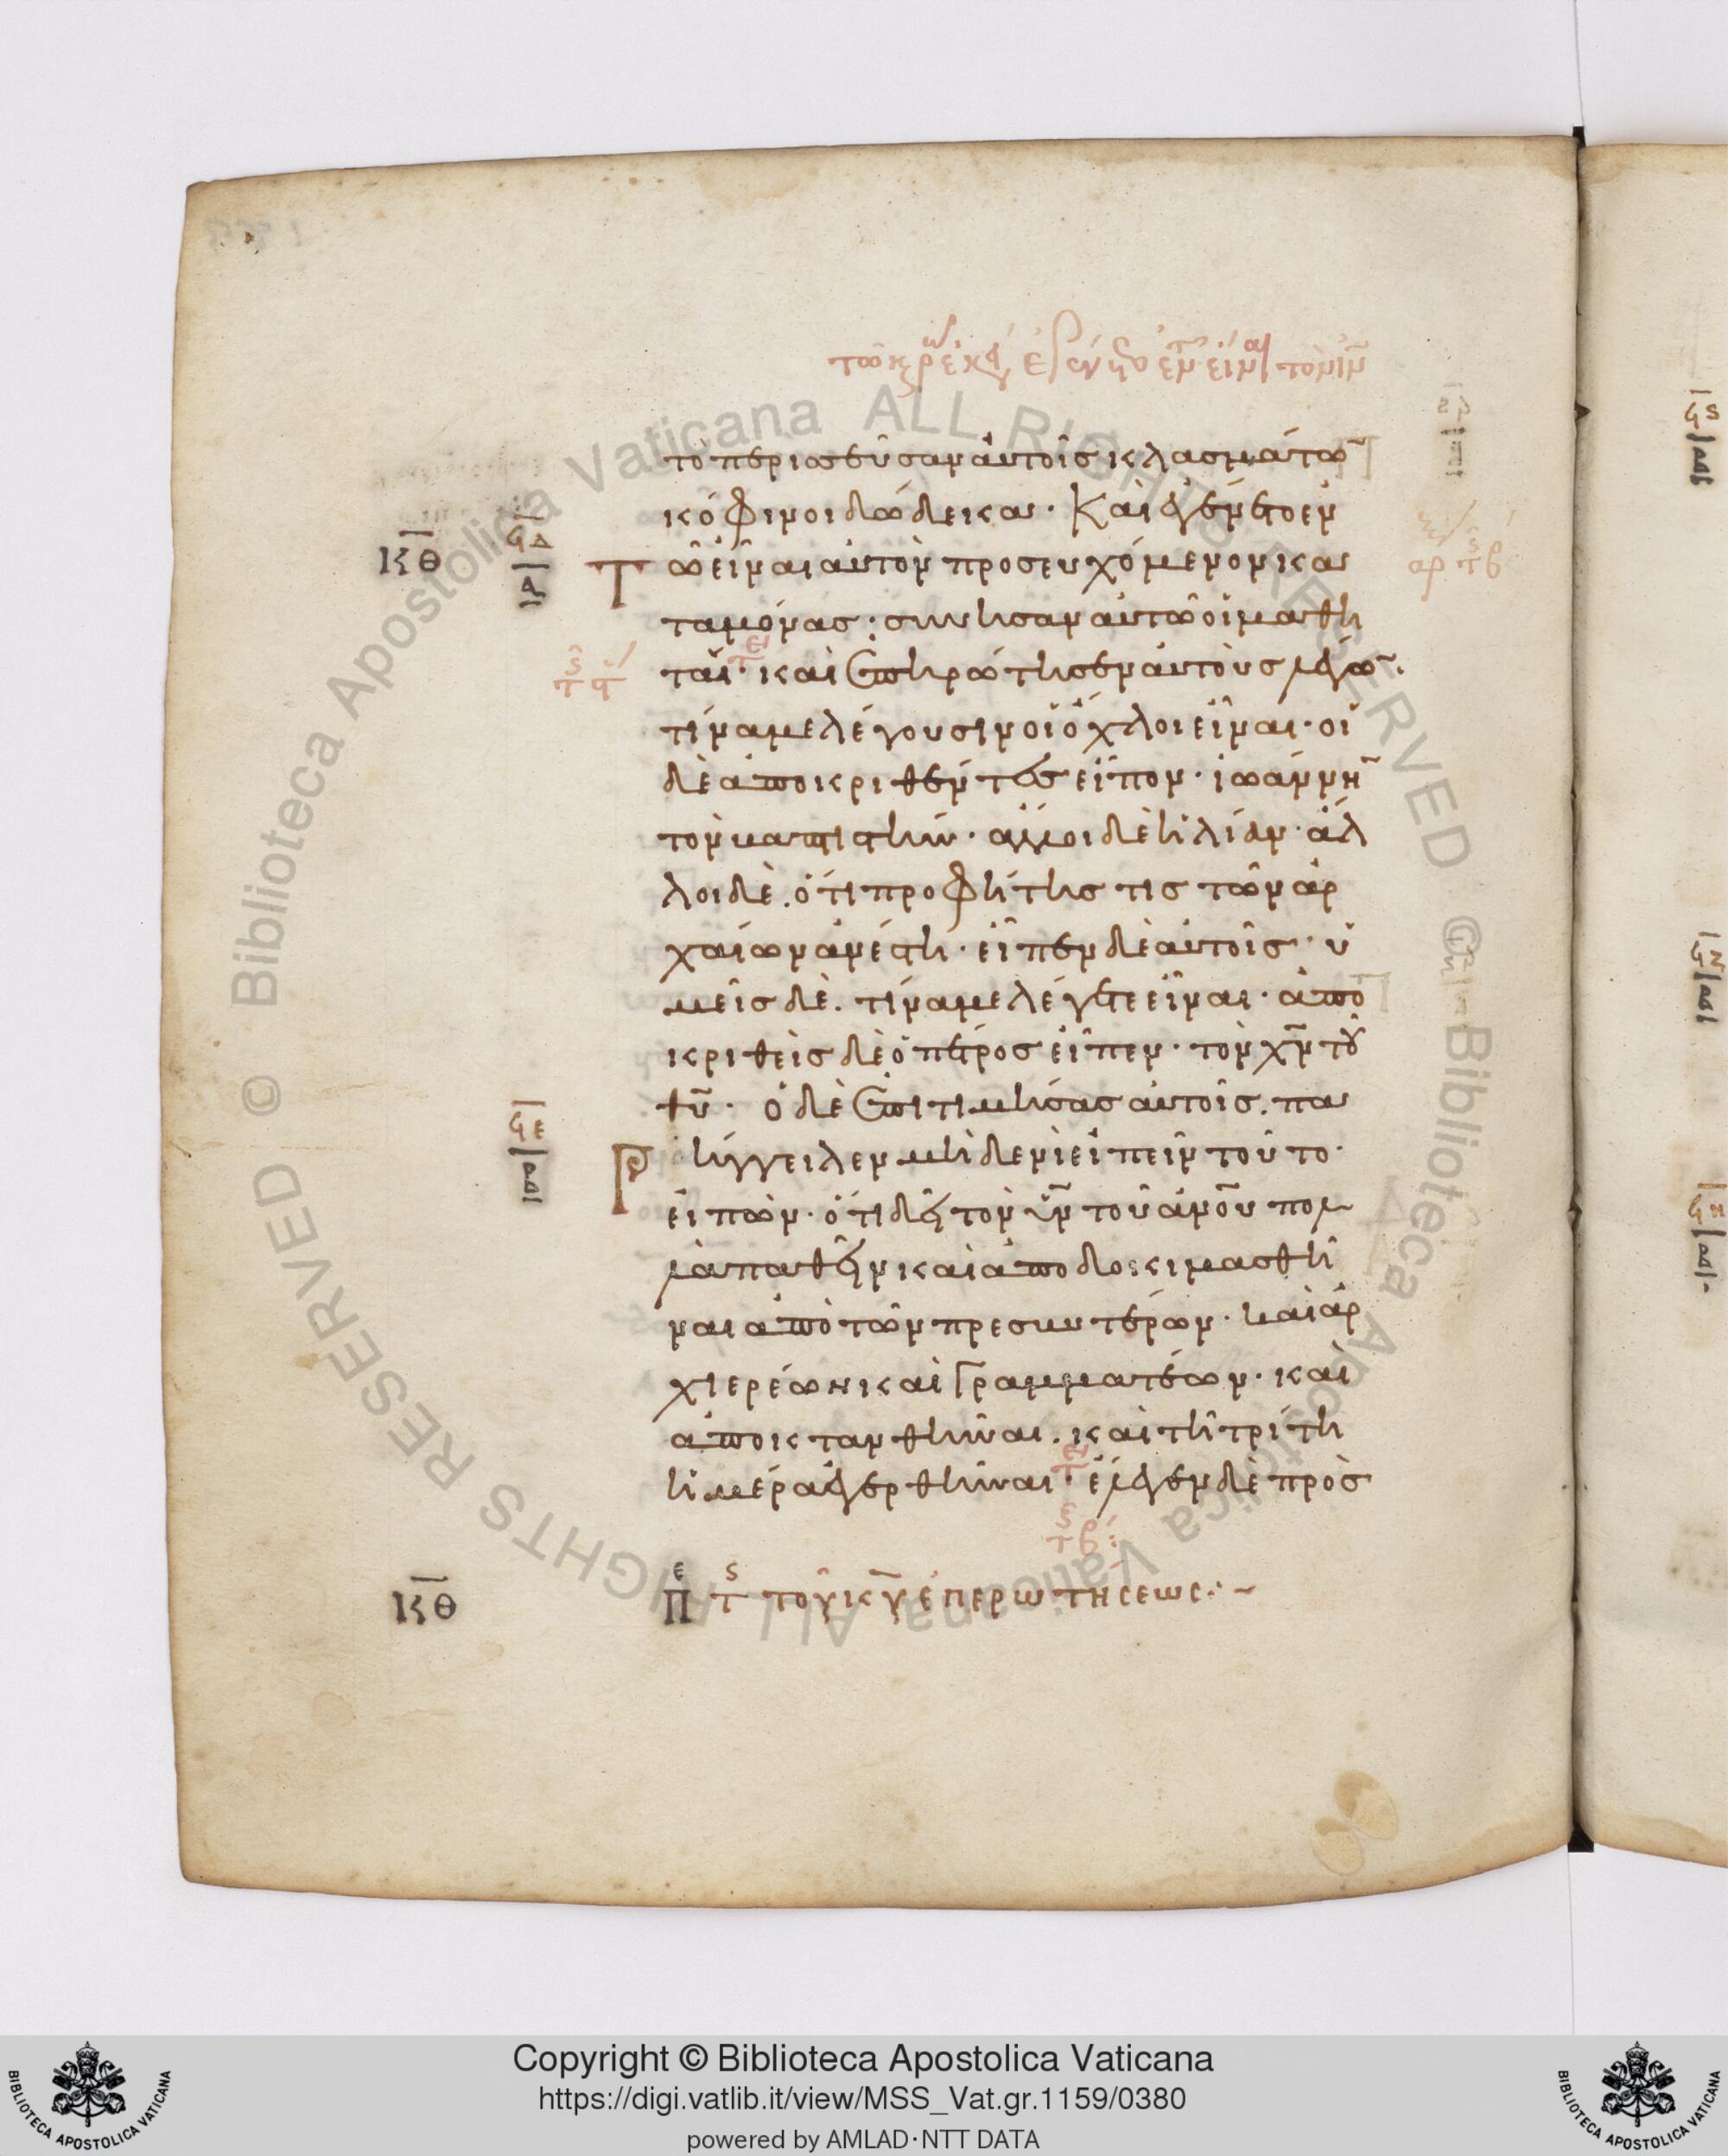 τὸ περισσεῦσαν αὐτοῖς κλασμάτω̅
κόφινοι δώδεκα· Καὶ ἐγένετο ἐν
Κ̅Θ̅
ϟ̅Δ̅
Τῶ εἶναι αὐτὸν προσευχόμενον κα
ταμόνας· συνῆσαν αὐτῶ οἱ μαθη
ταί· καὶ ἐπηρώτησεν αὐτοὺς λέγω̅·
τίνα με λέγουσιν οἱ ὄχλοι εἶναι· οἱ
δὲ ἀποκριθέντες εἶπον· ἰωάννη̅
τὸν βαπτιστήν· ἄλλοι δὲ ἠλίαν· ἄλ
λοι δὲ. ὅτι προφήτης τις τῶν ἀρ
χαίων ἀνέστη· εἶπεν δὲ αὐτοῖς· ὑ
μεῖς δὲ. τίνα με λέγετε εἶναι· ἀπο
κριθεὶς δὲ ὁ πέτρος εἶπεν· τὸν χ̅ν̅ τοῦ
θ̅υ̅· ὁ δὲ ἐπιτιμήσας αὐτοῖς. πα
ϟ̅Ε̅
Ρήγγειλεν μηδενὶ εἰπεῖν τοῦτο·
εἰπὼν· ὅτι δεῖ τὸν υ̅ν̅ τοῦ ἀν̅ο̅υ̅ πολ
λὰ παθεῖν καὶ ἀποδοκιμασθῆ
ναι ἀπὸ τῶν πρεσβυτέρων· καὶ ἀρ
χιερέων καὶ Γραμματέων· καὶ
ἀποκτανθῆναι. καὶ τῆ τρίτη
ἡμέρα ἐγερθῆναι· ἔλεγεν δὲ πρὸς
Κ̅Θ̅ Πε τς τοῦ κ̅υ̅ ἐπερωτήσεως
Copyright © Biblioteca Apostolica Vaticana
https://digi.vatlib.it/view/MSS_Vat.gr.1159/0380
powered by AMLAD·NTT DATA
BIBLIOTECA APOSTOLICA VATICANA
BIBLIOTECA APOSTOLICA VATICANA
© Biblioteca Apostolica Vaticana ALL RIGHTS RESERVED